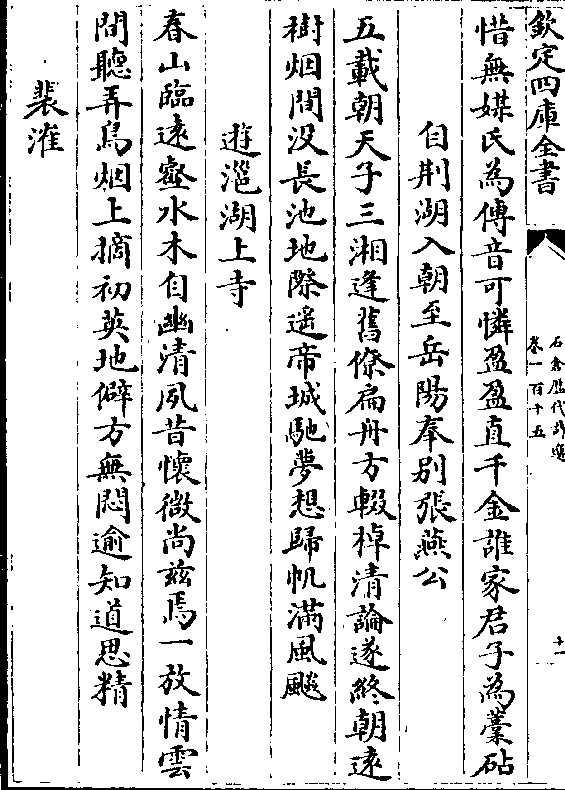 欽定四庫全書
石倉歷代詩選
卷一百十五
十一
惜無媒氏為傳音可憐盈盈直千金誰家君子為藁砧
自荆湖入朝至岳陽奉别張燕公
五載朝天子三湘逢舊僚扁舟方輟棹清論遂終朝遠
樹烟間没長池地際遥帝城馳夢想歸帆滿風飈
遊㴩湖上寺
春山臨遠壑水木自幽清夙昔懷微尚兹焉一放情雲
間聽弄鳥烟上摘初英地僻方無悶逾知道思精
裴漼